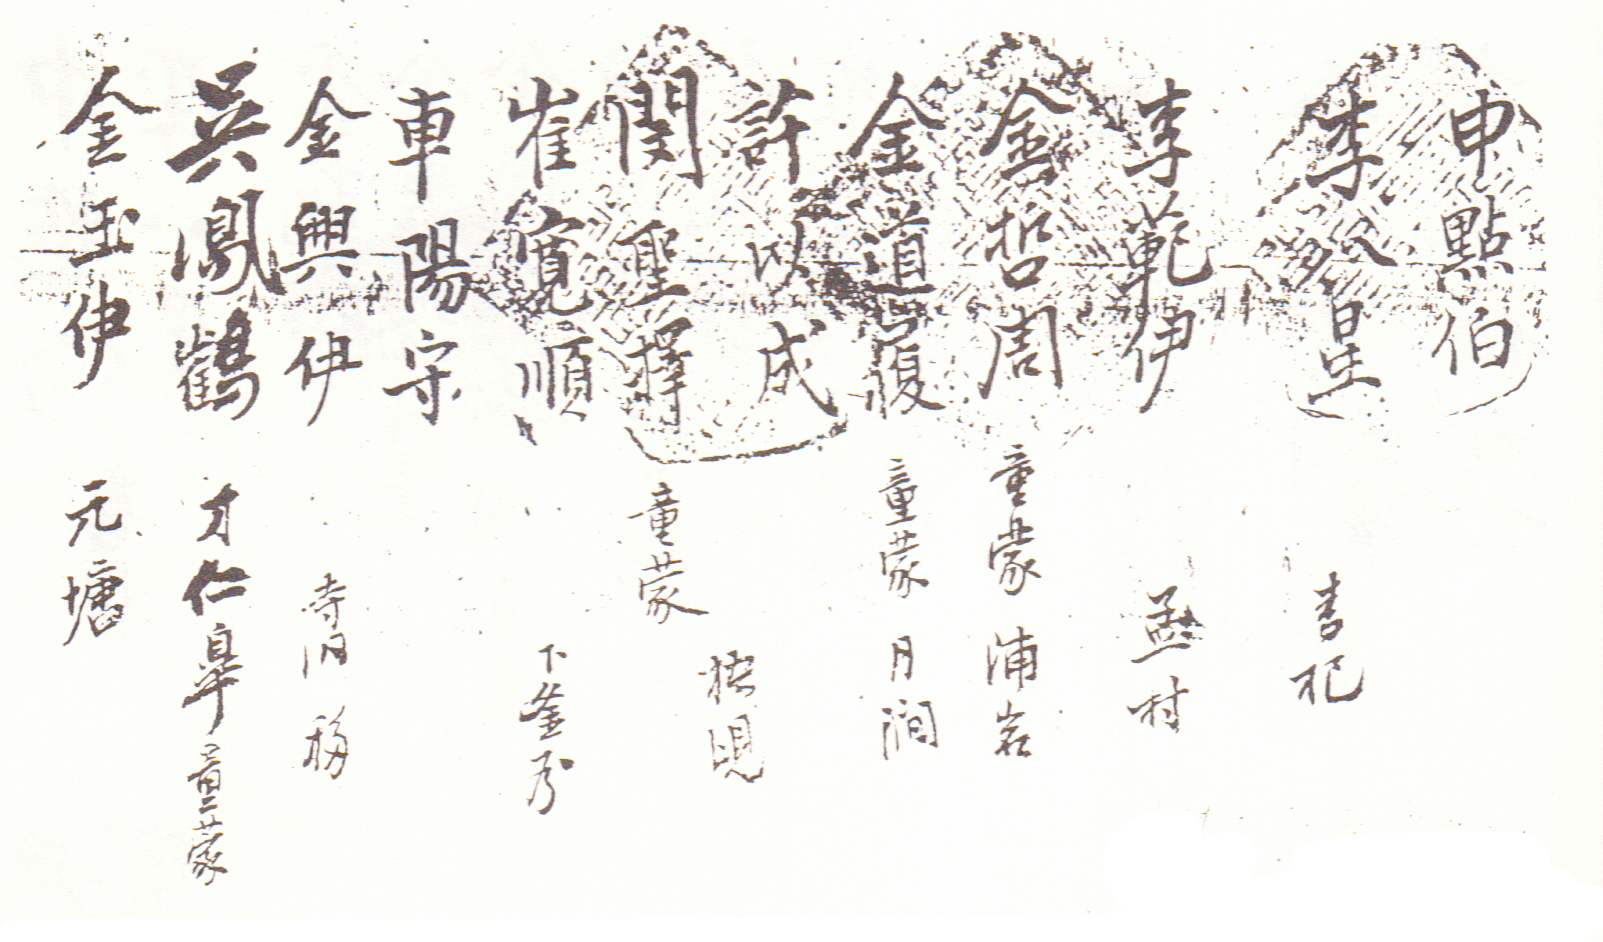 申點伯
李癸星 李杞
李範伊 孟村
金哲周 童蒙 浦岩
金道馥 童蒙 月澗
許以成 梧峴
閔聖擇 童蒙
崔寬順 下釜
車陽守
金興伊 寺內
吳鳳鶴 才仁皐 童蒙
金玉伊 元塘